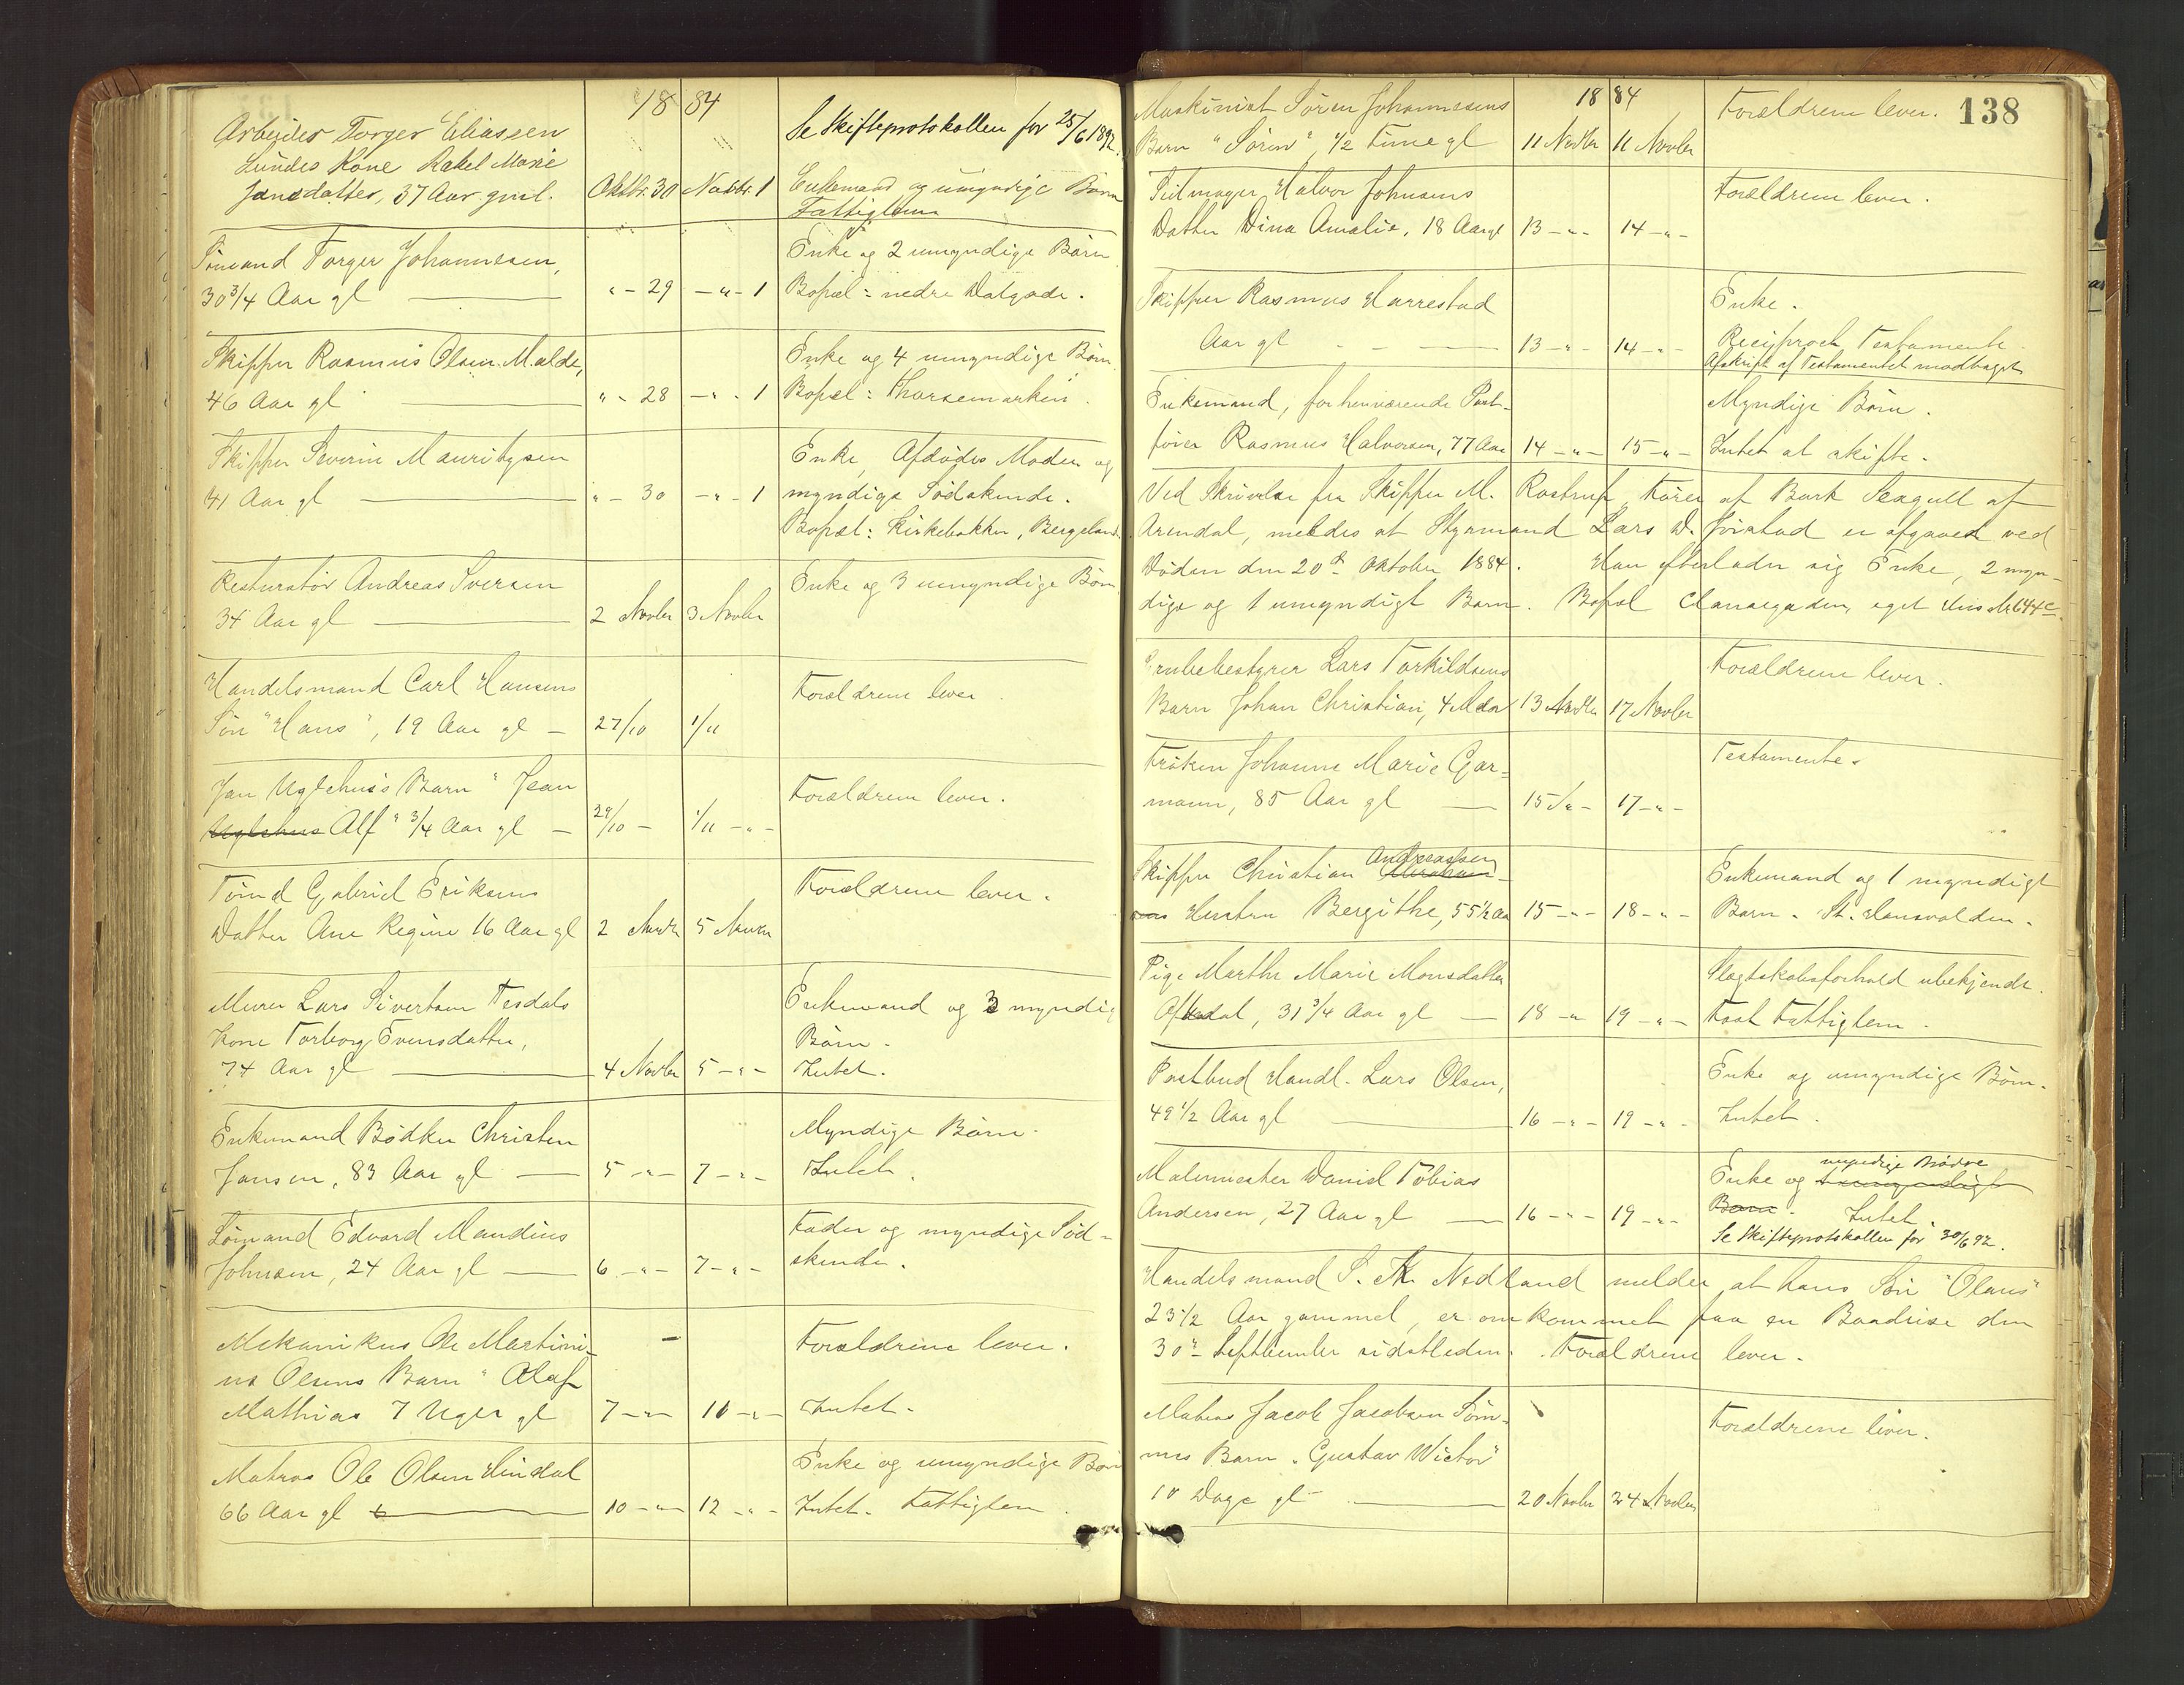 18 84
Arbeider Torger Eliassen
Lundes Kone Rakel Marie
Jansdatter, 37 Aar gml. Oktbr. 30 Novbr. 1
Se Skifteprotokollen for 25/6 1892.
Enkemand og umyndige Børn
Fattiglem
Sømand Torger Johannesen,
30 3/4 Aar gl " - 29 - " - 1
Enke og 2 umyndige Børn
Bopæl: nedre Dalgade.
Skipper Rasmus Olsen Malde,
46 Aar gl " - 28 - " - 1
Enke og 4 umyndige Børn
Bopæl:
Skipper Severin Mauritzsen
41 Aar gl " - 30 - " - 1
Enke, Afdødes Moder og
myndige Södskende.
Bopæl: Kirkebakken, Bergeland.
Resturatør Andreas Iversen
34 Aar gl 2 Novbr 3 Novbr
Enke og 3 umyndige Børn
Handelsmand Carl Hansens
Søn "Hans", 19 Aar gl - 27/10 1/11
Forældrene lever.
Jan Uglehus's Barn "Jean
Uglehus Alf" 3/4 Aar gl - 29/10 - 1/11 - " -
Forældrene lever.
Tømd Gabriel Eriksens
Datter Ane Regine 16 Aar gl 2 Novbr 5 Novbr
Forældrene lever.
Murer Lars Sivertsen Tesdals
Kone Torborg Evensdatter,
74 Aar gl 4 Novbr 5 - " -
Enkemand og 3 myndige
Børn.
Intet.
Enkemand Bødker Christen
Jansen, 83 Aar gl 5 - " - 7 - " -
Myndige Børn.
Intet.
Sømand Edvard Mandius
Johnsen, 24 Aar gl 6 - " - 7 - " -
Fader og myndige Sød-
skende.
Mekanikus Ole Martini-
us Olsens Barn "Olaf
Mathias 7 Uger gl 7 - " - 10 - " -
Forældrene lever.
Intet.
Matros Ole Olsen Lindal
66 Aar gl 10 - " - 12 - " -
Enke og umyndige Børn
Intet. Fattiglem
138
18 84
Maskinist Søren Johannesens
Barn "Sörin", 1/2 Time gl 11 Novbr 11 Novbr
Forældrene lever.
Halvor Johnsens
Datter Dina Amalie, 18 Aar gl 13 - " - 14 - " -
Forældrene lever.
Skipper Rasmus Harrestad
Aar gl 13 - " - 14 - " -
Enke.
Reciprock Testamente.
Afskrift af Testamentet modtaget
Enkemand, forhenværende Post-
fører Rasmus Halvorsen, 77 Aar 14 - " - 15 - " -
Myndige Børn.
Intet at skifte.
Ved Skrivelse fra Skipper M. Rostrup, Fører af Bark Seagull af
Arendal, meldes at Styrmand Lars D. er afgaaed ved
Døden den 20de Oktober 1884. Han efterlader sig Enke, 2 myn-
dige og 1 umyndigt Barn. Bopæl Clausegaden, eget Hus No 644 c.
Grubebestyrer Lars Torkildsens
Barn Johan Christian, 4 Mdr 13 Novbr 17 Novbr
Forældrene lever.
Frøken Johanne Marie Gar-
mann, 85 Aar gl 15 - " - 17 - " -
Testamente.
Andreassen
Skipper Christian
Hustru Bergithe, 55 1/2 Aar 15 - " - 18 - " -
Enkemand og 1 myndigt
Barn. St. Hansvolden.
Pige Marthe Marie Monsdatter
31 3/4 Aar gl 18 - " 19 - " -
Slægtskabsforhold ubekjendt.
Fast Fattiglem.
Postbud Handl. Lars Olsen,
49 1/2 Aar gl 16 - " - 19 - " -
Enke og umyndige Børn.
Intet.
Malermester Daniel Tobias
Andersen, 27 Aar gl 16 - " - 19 - " -
myndige Brødre
Enke og 1 umyndigt
Barn. Intet.
Se Skifteprotokollen for 30/6 92.
Handelsmand S. Th. Nedland melder at hans Søn "Olaus"
23 1/2 Aar gammel, er omkommet paa en Baadreise den
30te September sidstleden. Forældrene lever.
Matros Jacob Jacobsen Søm-
mes Barn "Gustav Wictor"
10 Dage gl 20 Novbr 24 Novbr
Forældrene lever.